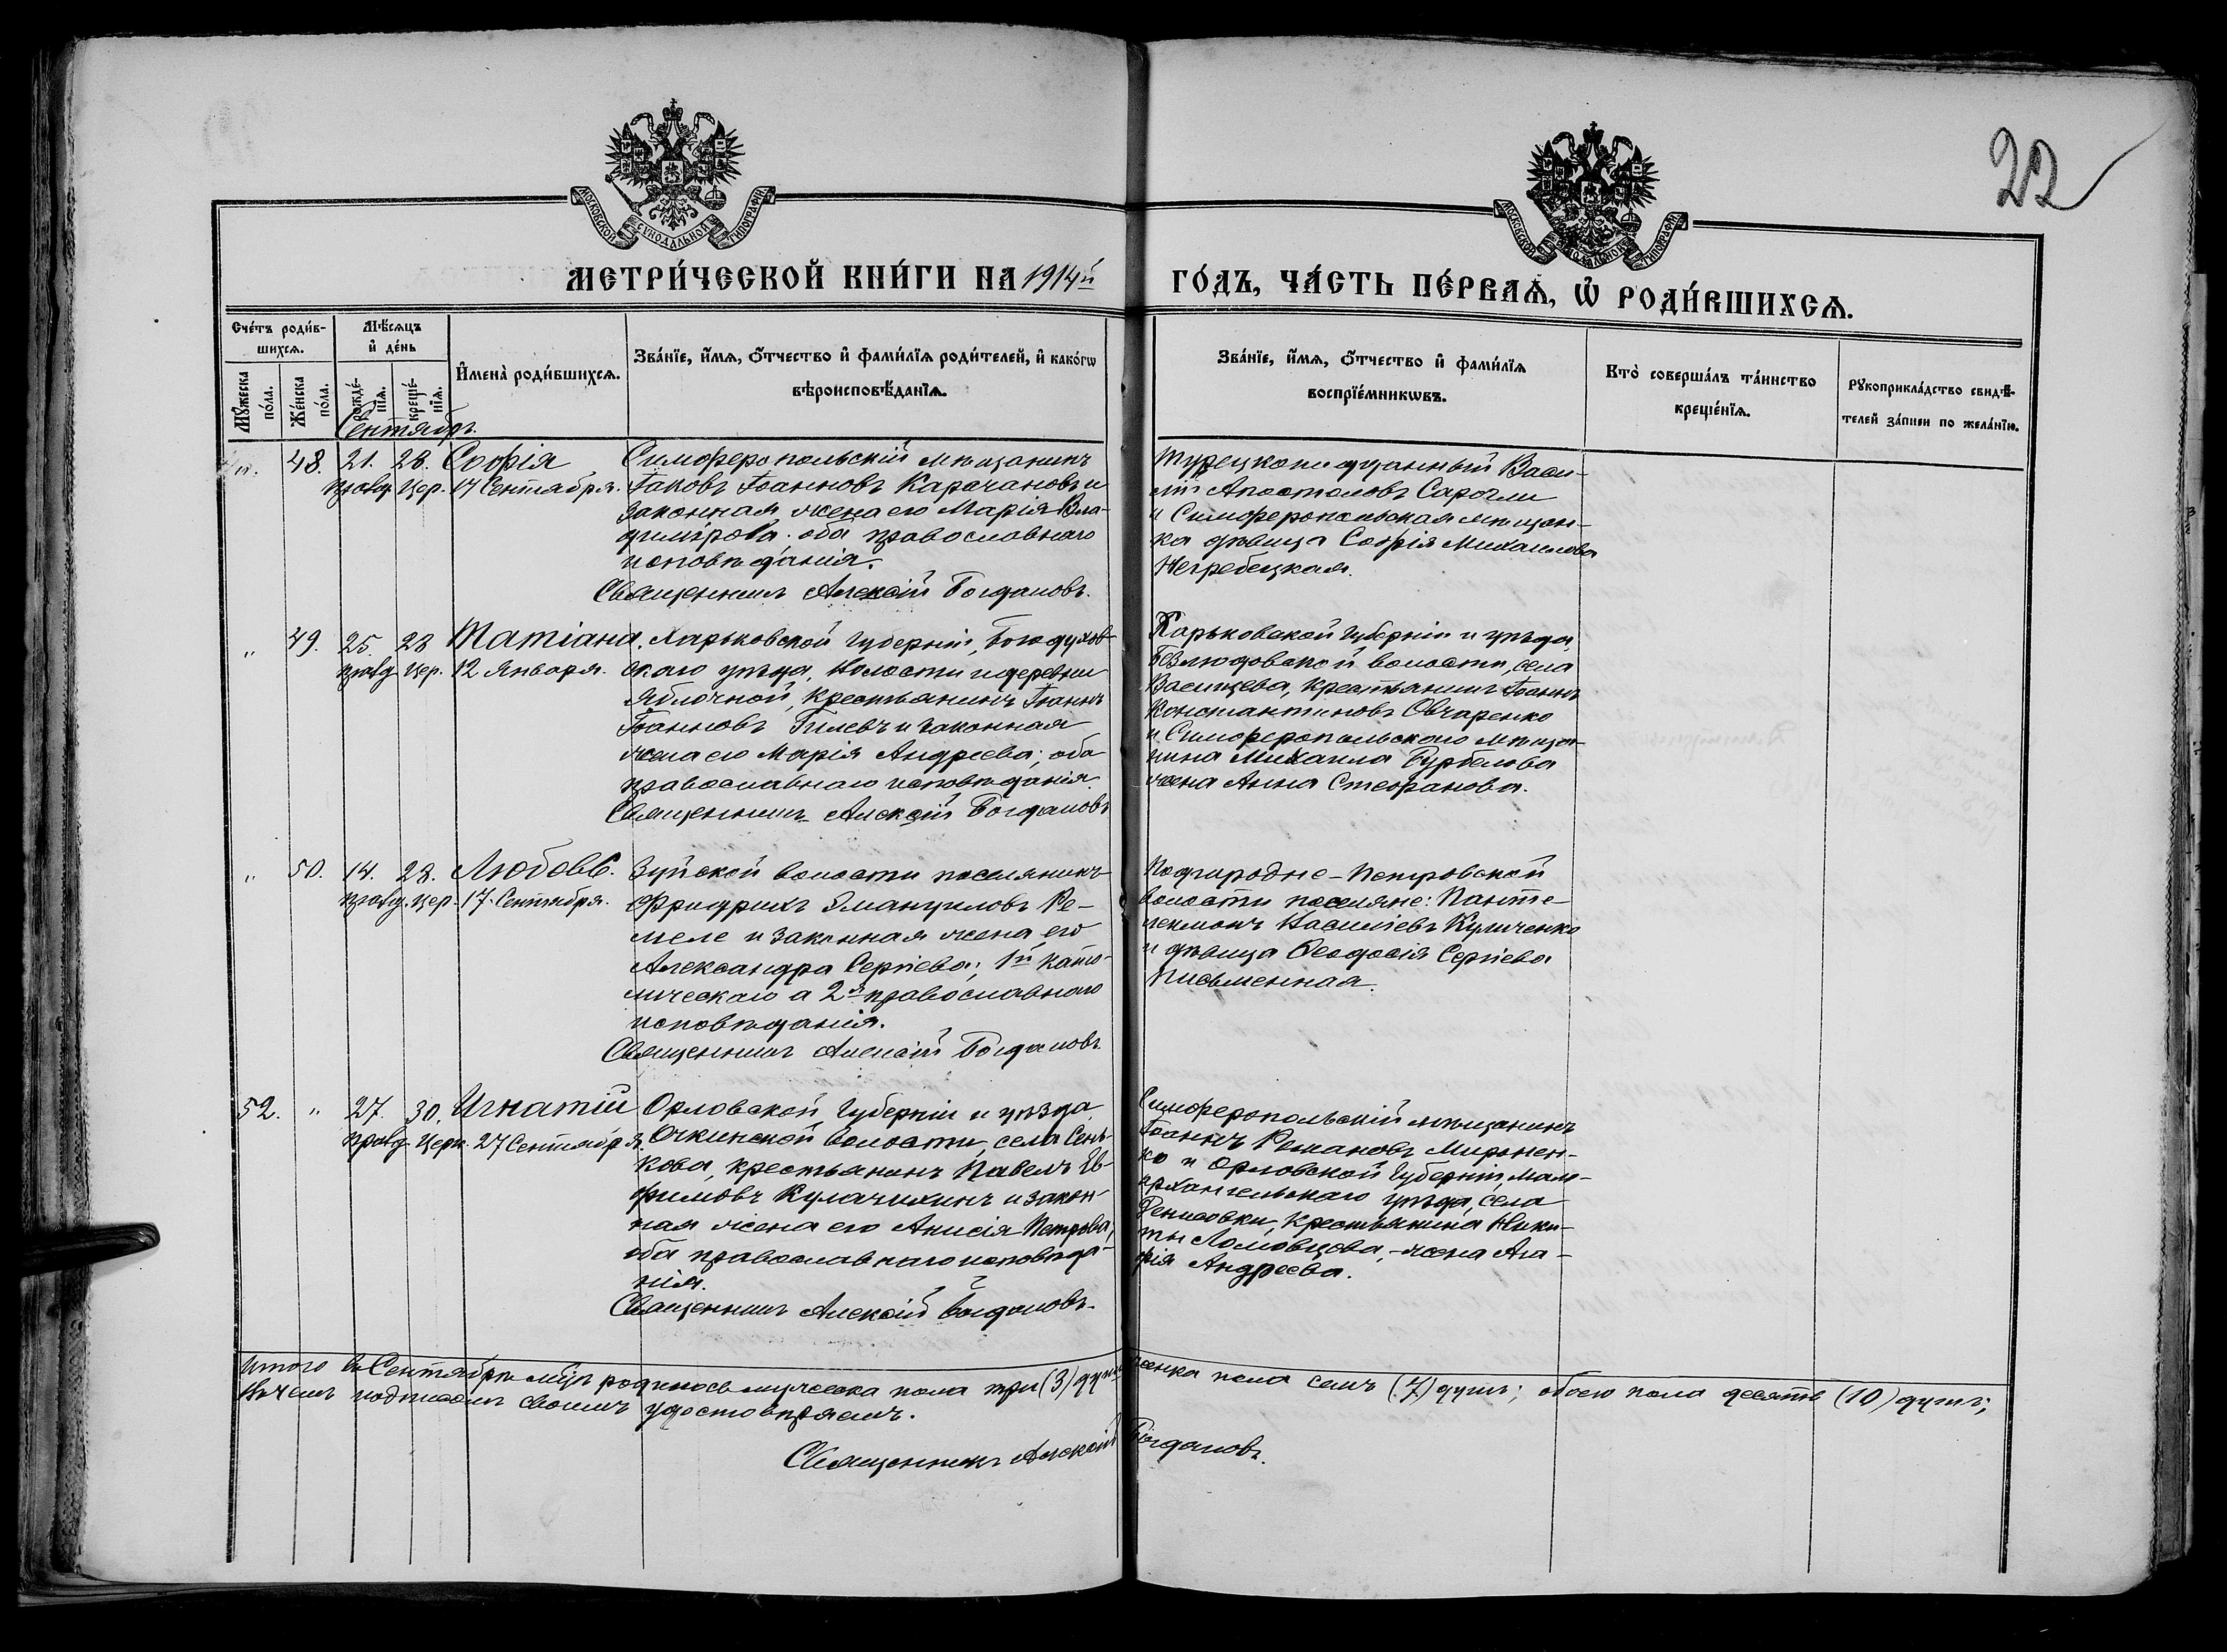 22
МОСКОВСКОЙ СУНОДАЛЬНОЙ ТИПОГРАФІИ
МОСКОВСКОЙ СУНОДАЛЬНОЙ ТИПОГРАФІИ
МЕТРИ́ЧЕСКОЙ КНИ́ГИ НА 1914й ГО́ДЪ, ЧА́СТЬ ПЕ́РВАѦ, Ѡ҆ РОДИ́ВШИХСѦ.
Сче́тъ роди́в-
шихсѧ.
Мѣ́сѧцъ
и҆ де́нь
И҆мена̀ роди́вшихсѧ.
Зва́нїе, и҆́мѧ, ѻ҆́тчество и҆ фами́лїѧ роди́телей, и҆ како́гѡ
вѣроисповѣ́данїѧ.
Зва́нїе, и҆́мѧ, ѻ҆́тчество и҆ фами́лїѧ
воспрїе́мникѡвъ.
Кто̀ соверша́лъ та́инство
креще́нїѧ.
Рꙋкоприкла́дство свидѣ́-
телей за́писи по жела́нїю.
Мꙋ́жеска
по́ла.
Же́нска
по́ла.
рожде́-
нїѧ.
креще́-
нїѧ.
Сентябрь
48. 21. 28. Софія
гражд. Цер. 17 Сентября.
Симферопольскій мѣщанинъ
Іаковъ Іоанновъ Карачановъ и
законная жена его Марія Вла-
димірова. оба православнаго
исповѣданія.
Священникъ Алексій Богдановъ.
Турецкоподданный Васи-
лій Апостоловъ Сарогли
и Симферопольская мѣщан-
ка дѣвица Софія Михаилова
Негребецкая.
" 49. 25. 28 Татіана.
гражд Цер. 12 Января.
Харьковской губерніи, Богодухов-
скаго уѣзда, Волости и деревни
Яблочной, крестьянинъ Іоаннъ
Іоанновъ Гилевъ и законная
жена его Марія Андреева; оба
православнаго исповѣданія.
Священникъ Алексій Богдановъ
Харьковской губерніи и уѣзда,
Безлюдовской волости, села
Васищева, крестьянинъ Іоаннъ
Константиновъ Овчаренко
и Симферопольскаго мѣща-
нина Михаила Бурбелова
жена Анна Стефанова.
" 50. 14. 28. Любовь.
гражд. Цер. 17 Сентября.
Зуйской волости поселянинъ
Фридрихъ Эмануиловъ Ре-
меле и законная жена его
Александра Сергіева; 1й като-
лическаго а 2я православнаго
исповѣданія.
Священникъ Алексій Богдановъ
Подгородне-Петровской
волости поселяне: Панте-
леимонъ Василіевъ Куличенко
и дѣвица Ѳеодосія Сергіева
Письменная.
52. " 27. 30. Игнатій
гражд Церк. 27 Сентября.
Орловской губерніи и уѣзда
Очкинской волости, села Сень-
кова, крестьянинъ Павелъ Ев-
фимовъ Кулачихинъ и закон-
ная жена его Анисія Петрова,
оба православнаго исповѣда-
нія.
Священникъ Алексій Богдановъ.
Симферопольскій мѣщанинъ
Іоаннъ Романовъ Миронен-
ко и Орловской губерніи, Мало-
архангельскаго уѣзда, села
крестьянина Ники-
ты Ломовцева, жена Ага-
фія Андреева.
Итого въ Сентябрѣ мцѣ родилось мужеска пола три (3) душъ женска пола семъ (7) душъ; обоего пола десять (10) душъ;
въ чемъ подписомъ своимъ удостовѣряемъ.
Священникъ Алексій Богдановъ.